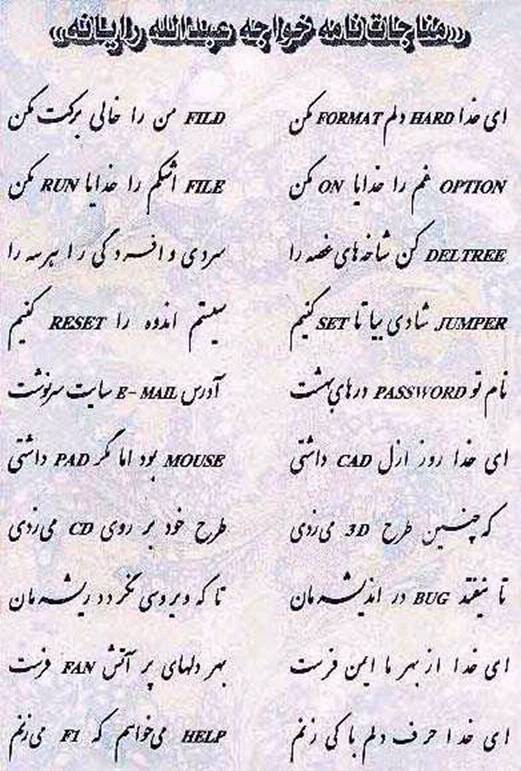 «مناجات نامه خواجه عبدالله رایانه»
ای خدا HARD دلم FORMAT مکن FILD من را خالی برکت مکن
OPTION غم را خدایا ON مکن FILE اشکم را خدایا RUN مکن
DELTREE کن شاخه های غصه را سردی و افسردگی را هر سه را
JUMPER شادی بیا تا SET کنیم سیستم اندوه را RESET کنیم
نام تو PASSWORD درهای بهشت آدرس E-MAIL سایت سرنوشت
ای خدا روز ازل CAD داشتی MOUSE بود اما مگر PAD داشتی
که چنین طرح 3D می زدی طرح خود بر روی CD می زدی
تا نیفتد BUG در اندیشه مان تا که ویروسی نگردد ریشه مان
ای خدا از بهر ما ایمن فرست بهر دلهای پر آتش FAN فرست
ای خدا حرف دلم با کی زنم HELP می خواهم که F1 می زنم